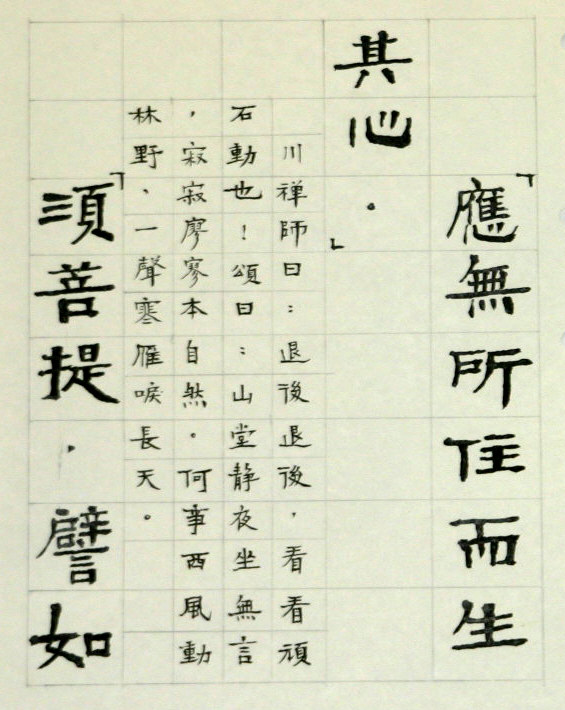 「應無所住而生
其心。」
川禅師曰：退後退後，看看頑
石動也！頌曰：山堂静夜坐無言
，寂寂廖寥本自然。何事西風動
林野、一聲寒雁唳長天。
「須菩提，譬如